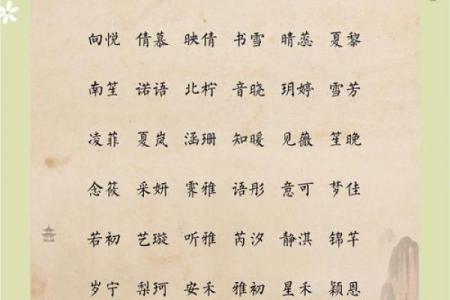 向悦 倩慕 映倩 书雪 晴蕊 夏黎
南笙 诺语 北柠 音晓 玥婷 雪芳
凌菲 夏岚 涵珊 知暖 见薇 笙晚
念筱 采妍 霁雅 语彤 意可 梦佳
若初 艺璇 听雅 芮汐 静淇 锦芊
岁宁 梨珂 安禾 雅初 星禾 颖恩